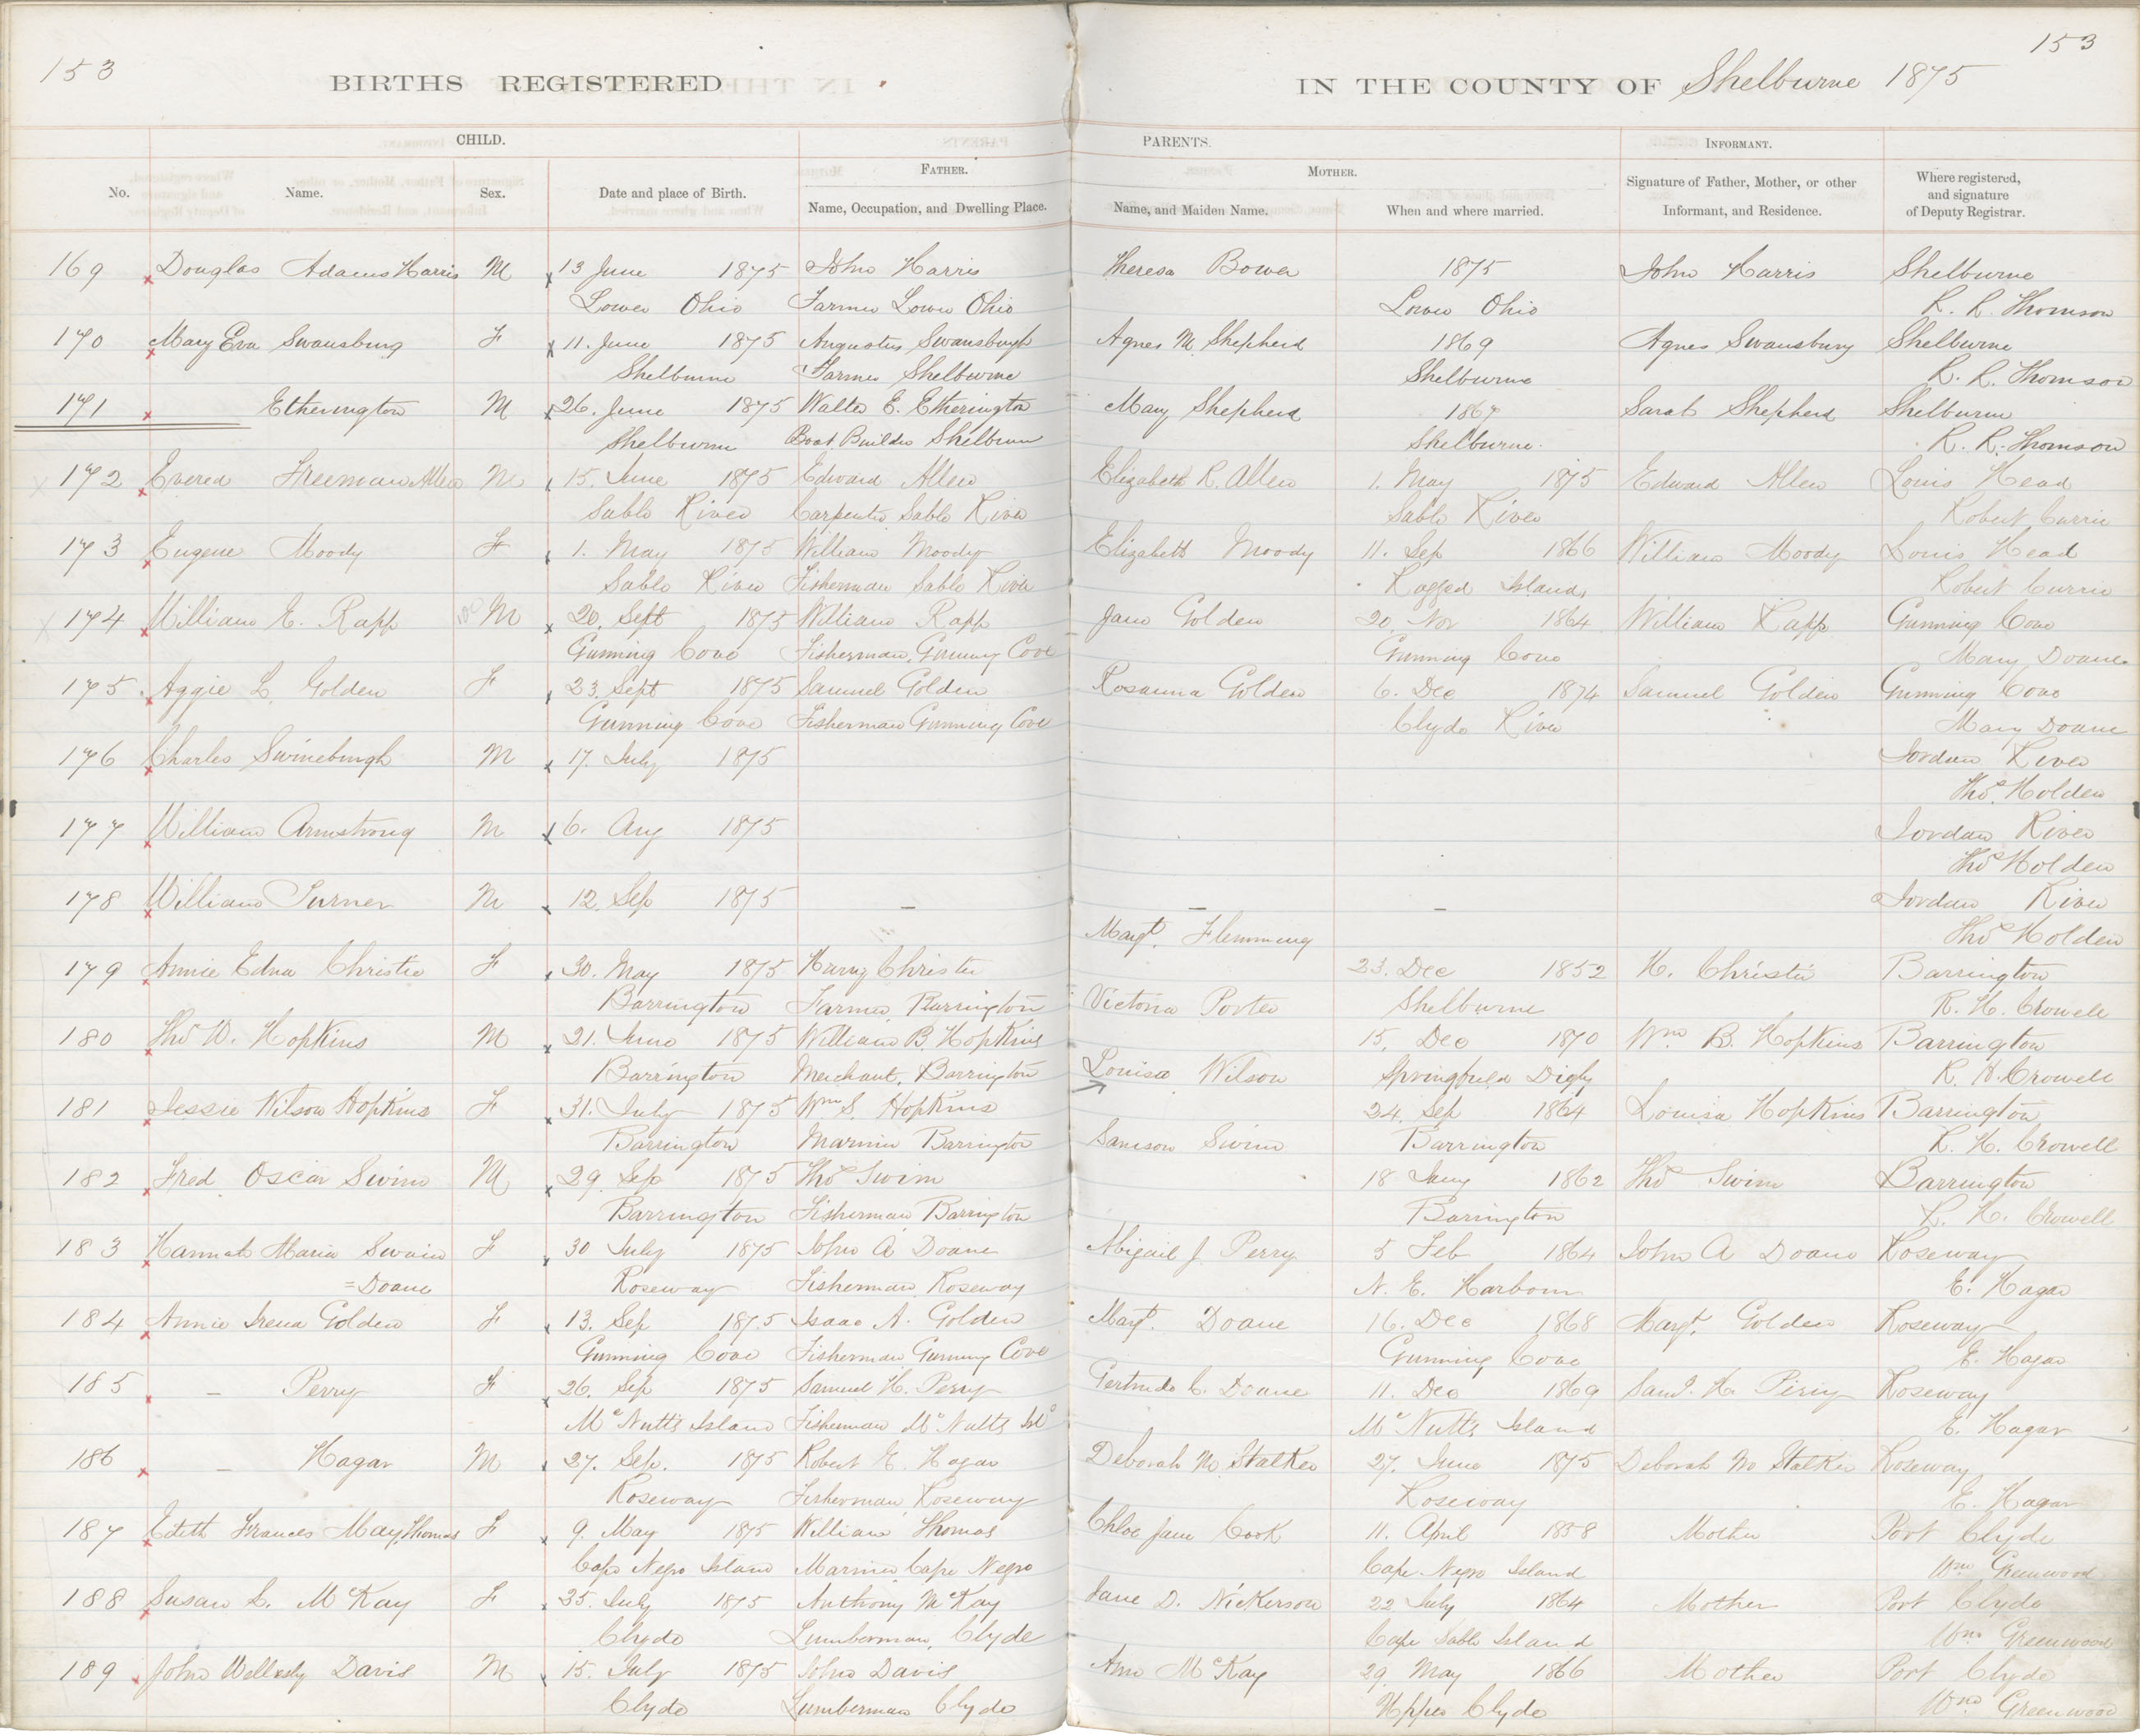 153
153
BIRTHS REGISTERED
IN THE COUNTY OF Shelburne 1875
CHILD.
PARENTS.
INFORMANT.
FATHER.
MOTHER.
No.
Name.
Sex.
Date and place of Birth.
Name, Occupation, and Dwelling Place.
Name, and Maiden Name.
When and where married.
Signature of Father, Mother, or other
Informant, and Residence.
Where registered,
and signature
of Deputy Registrar.
169 Douglas Adams Harris M 13 June 1875 John Harris Theresa Bower 1875 John Harris Shelburne
Lower Ohio Farmer Lower Ohio Lower Ohio R. R. Thomson
170 Mary Eva Swansburg F 11. June 1875 Augustus Swansburgh Agnes M. Shepherd 1869 Agnes Swansburg Shelburne
Shelburne Farmer Shelburne Shelburne R. R. Thomson
171 Etherington M 26. June 1875 Walter E. Etherington Mary Shepherd 1867 Sarah Shepherd Shelburne
Shelburne Boat Builder Shelburne Shelburne. R. R. Thomson
172 Evered Freeman Allen M 15. June 1875 Edward Allen Elizabeth R. Allen 1. May 1875 Edward Allen Louis Head
Sable River Carpenter Sable River Sable River Robert Currie
173 Eugene Moody F 1. May 1875 William Moody Elizabeth Moody 11. Sep 1866 William Moody Louis Head
Sable River Fisherman Sable River Ragged Island, Robert Currie
174 William E. Rapp M 20. Sept 1875 William Rapp Jane Golden 20. Nov 1864 William Rapp Gunning Cove
Gunning Cove Fisherman, Gunning Cove Gunning Cove Mary Doane
175 Aggie L. Golden F 23. Sept 1875 Samuel Golden Rosanna Golden 6. Dec 1874 Samuel Golden Gunning Cove
Gunning Cove Fisherman Gunning Cove Clyde River Mary Doane
176 Charles Swineburgh M 17. July 1875 Jordan River
Thos. Holden
177 William Armstrong M 6. Aug 1875 Jordan River
Thos Holden
178 William Turner M 12. Sep 1875 – – – Jordan River
Margt. Flemming Thos Holden
179 Annie Edna Christie F 30. May 1875 Harry Christie 23. Dec 1852 H. Christie Barrington
Barrington Farmer, Barrington Victoria Porter Shelburne R. H. Crowell
180 Thos W. Hopkins M 21. June 1875 William B. Hopkins 15. Dec 1870 Wm B. Hopkins Barrington
Barrington Merchant, Barrington Louisa Wilson Springfield Digby R. H. Crowell
181 Jessie Wilson Hopkins F 31. July 1875 Wm S. Hopkins 24. Sep 1864 Louisa Hopkins Barrington
Barrington Mariner Barrington Samson Swim Barrington R. H. Crowell
182 Fred Oscar Swim M 29. Sep 1875 Thos Swim 18 Jany 1862 Thos Swim Barrington
Barrington Fisherman Barrington Barrington R. H. Crowell
183 Hannah Maria Swain F 30 July 1875 John A. Doane Abigail J. Perry 5 Feb 1864 John A Doane Roseway
=Doane Roseway Fisherman Roseway N. E. Harbour E. Hagar
184 Annie Irena Golden F 13. Sep 1875 Isaac A. Golden Margt. Doane 16. Dec 1868 Margt. Golden Roseway
Gunning Cove Fisherman, Gunning Cove Gunning Cove E. Hagar
185 – Perry F 26. Sep 1875 Samuel H. Perry Gertrude C. Doane 11. Dec 1869 Saml. H. Perry Roseway
McNutts Island Fisherman McNutts Isld McNutts Island E. Hagar
186 – Hagar M 27. Sep. 1875 Robert E. Hagar Deborah McStalker 27. June 1875 Deborah McStalker Roseway
Roseway Fisherman Roseway Roseway E. Hagar
187 Edith Frances May Thomas F 9. May 1875 William Thomas Chloe Jane Cook 11. April 1858 Mother Port Clyde
Cape Negro Island Mariner Cape Negro Cape Negro Island Wm Greenwood
188 Susan L. McKay F 25. July 1875 Anthony McKay Jane D. Nickerson 22 July 1864 Mother Port Clyde
Clyde Lumberman, Clyde Cape Sable Island Wm Greenwood
189 John Wellesly Davis M 15. July 1875 John Davis Ann McKay 29. May 1866 Mother Port Clyde
Clyde Lumberman Clyde Upper Clyde Wm Greenwood